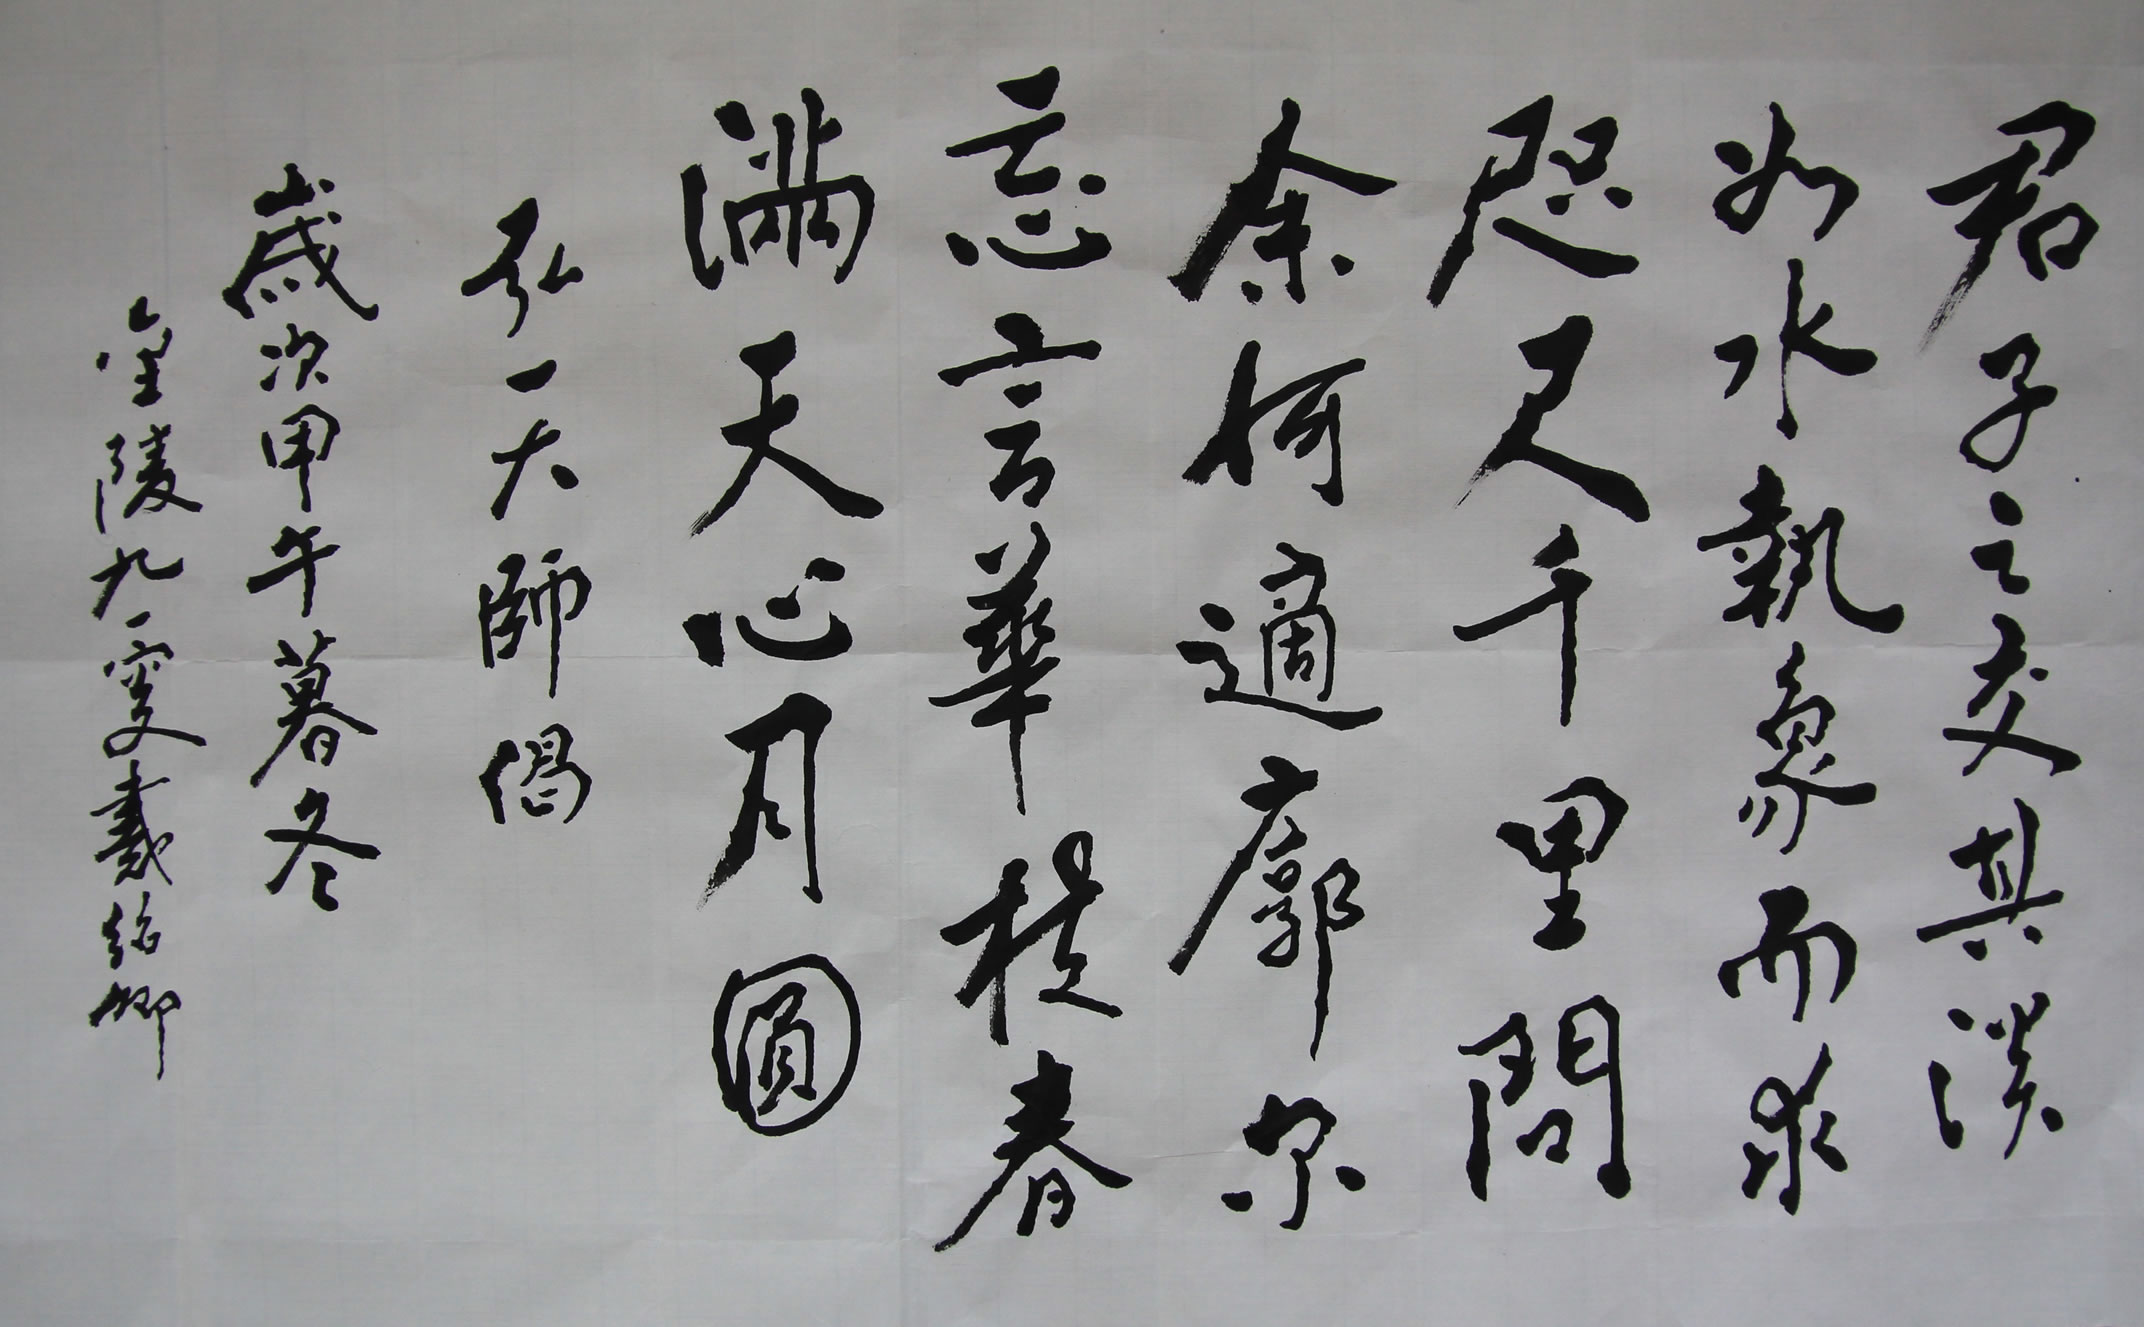 君子之交其淡
如水執象而求
咫尺千里問
余何適廓尔
忘言華枝春
滿天心月圓
弘一大師偈
歲次甲午暮冬
金陵九一叟戴紹卿